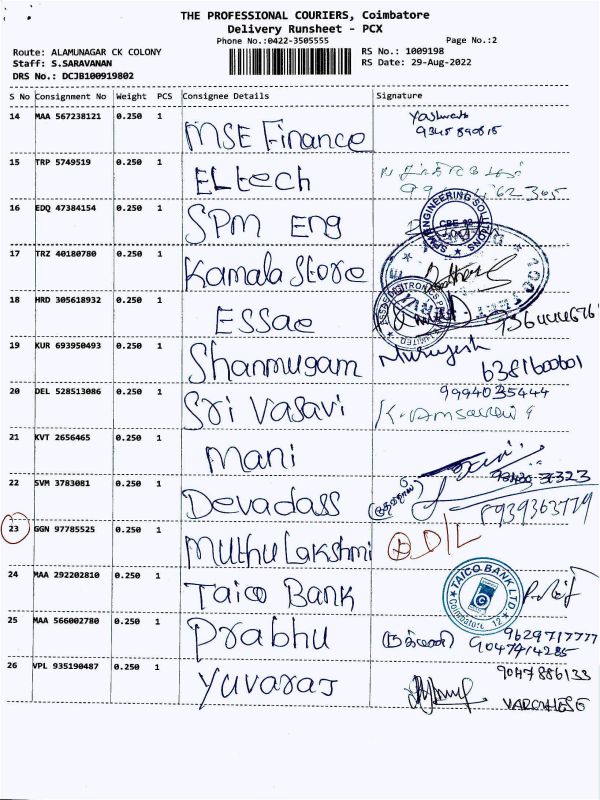 THE PROFESSIONAL COURIERS, Coimbatore
Delivery Runsheet - PCX
Phone No.:0422-3505555
Page No.:2
Route: ALAMUNAGAR CK COLONY
RS No.: 1009198
Staff: S.SARAVANAN
RS Date: 29-Aug-2022
DRS No.: DCJB100919802
S No Consignment No Weight PCS Consignee Details Signature
14 MAA 567238121 0.250 1 MSE Finance
15 TRP 5749519 0.250 1 ELtech
16 EDQ 47384154 0.250 1 SPM Eng
SPM ENGINEERING SOLUTIONS
17 TRZ 40180780 0.250 1 Kamala Store
18 HRD 305618932 0.250 1 Essae
19 KUR 693950493 0.250 1 Shanmugam Murugesh
6381600601
20 DEL 528513086 0.250 1 Sri Vasavi 9994035444
21 KVT 2656465 0.250 1 Mani
22 SVM 3783081 0.250 1 Devadass
8939363779
23 GGN 97785525 0.250 1 Muthu Lakshmi D/L
24 MAA 292202810 0.250 1 Taico Bank TAICO BANK LTD Coimbatore 12
25 MAA 566002780 0.250 1 Prabhu 9629717777
9047914285
26 VPL 935190487 0.250 1 Yuvaraj 9047886133
VARGHESE